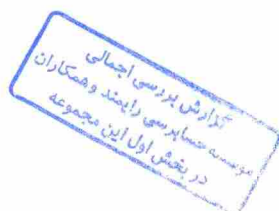 گزارش بررسی اجمالی
موسسه حسابرسی رایمند و همکاران
در بخش اول این مجموعه